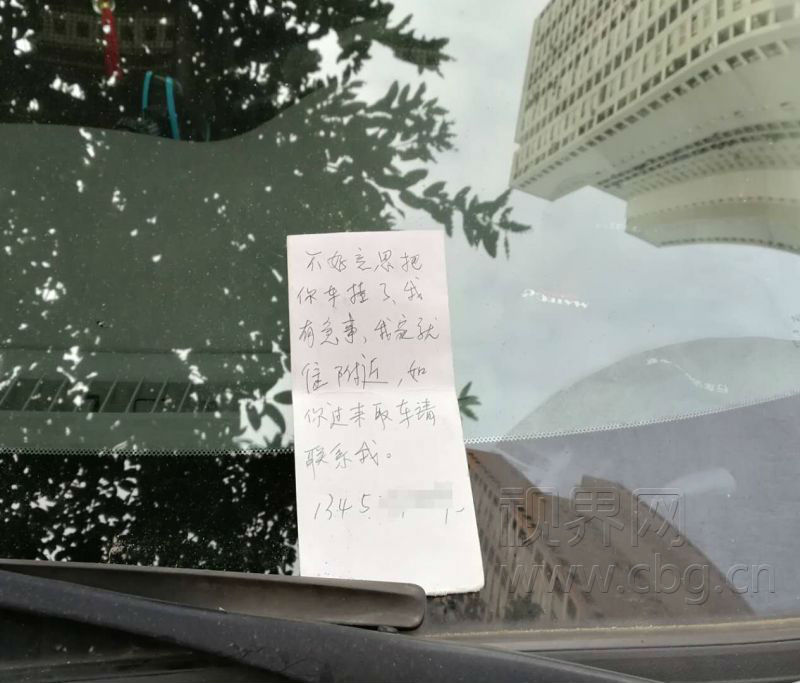 不好意思把
你车撞了、我
有急事、我家就
住附近，如
你过来取车请
联系我。
1345
视界网
www.cbg.cn